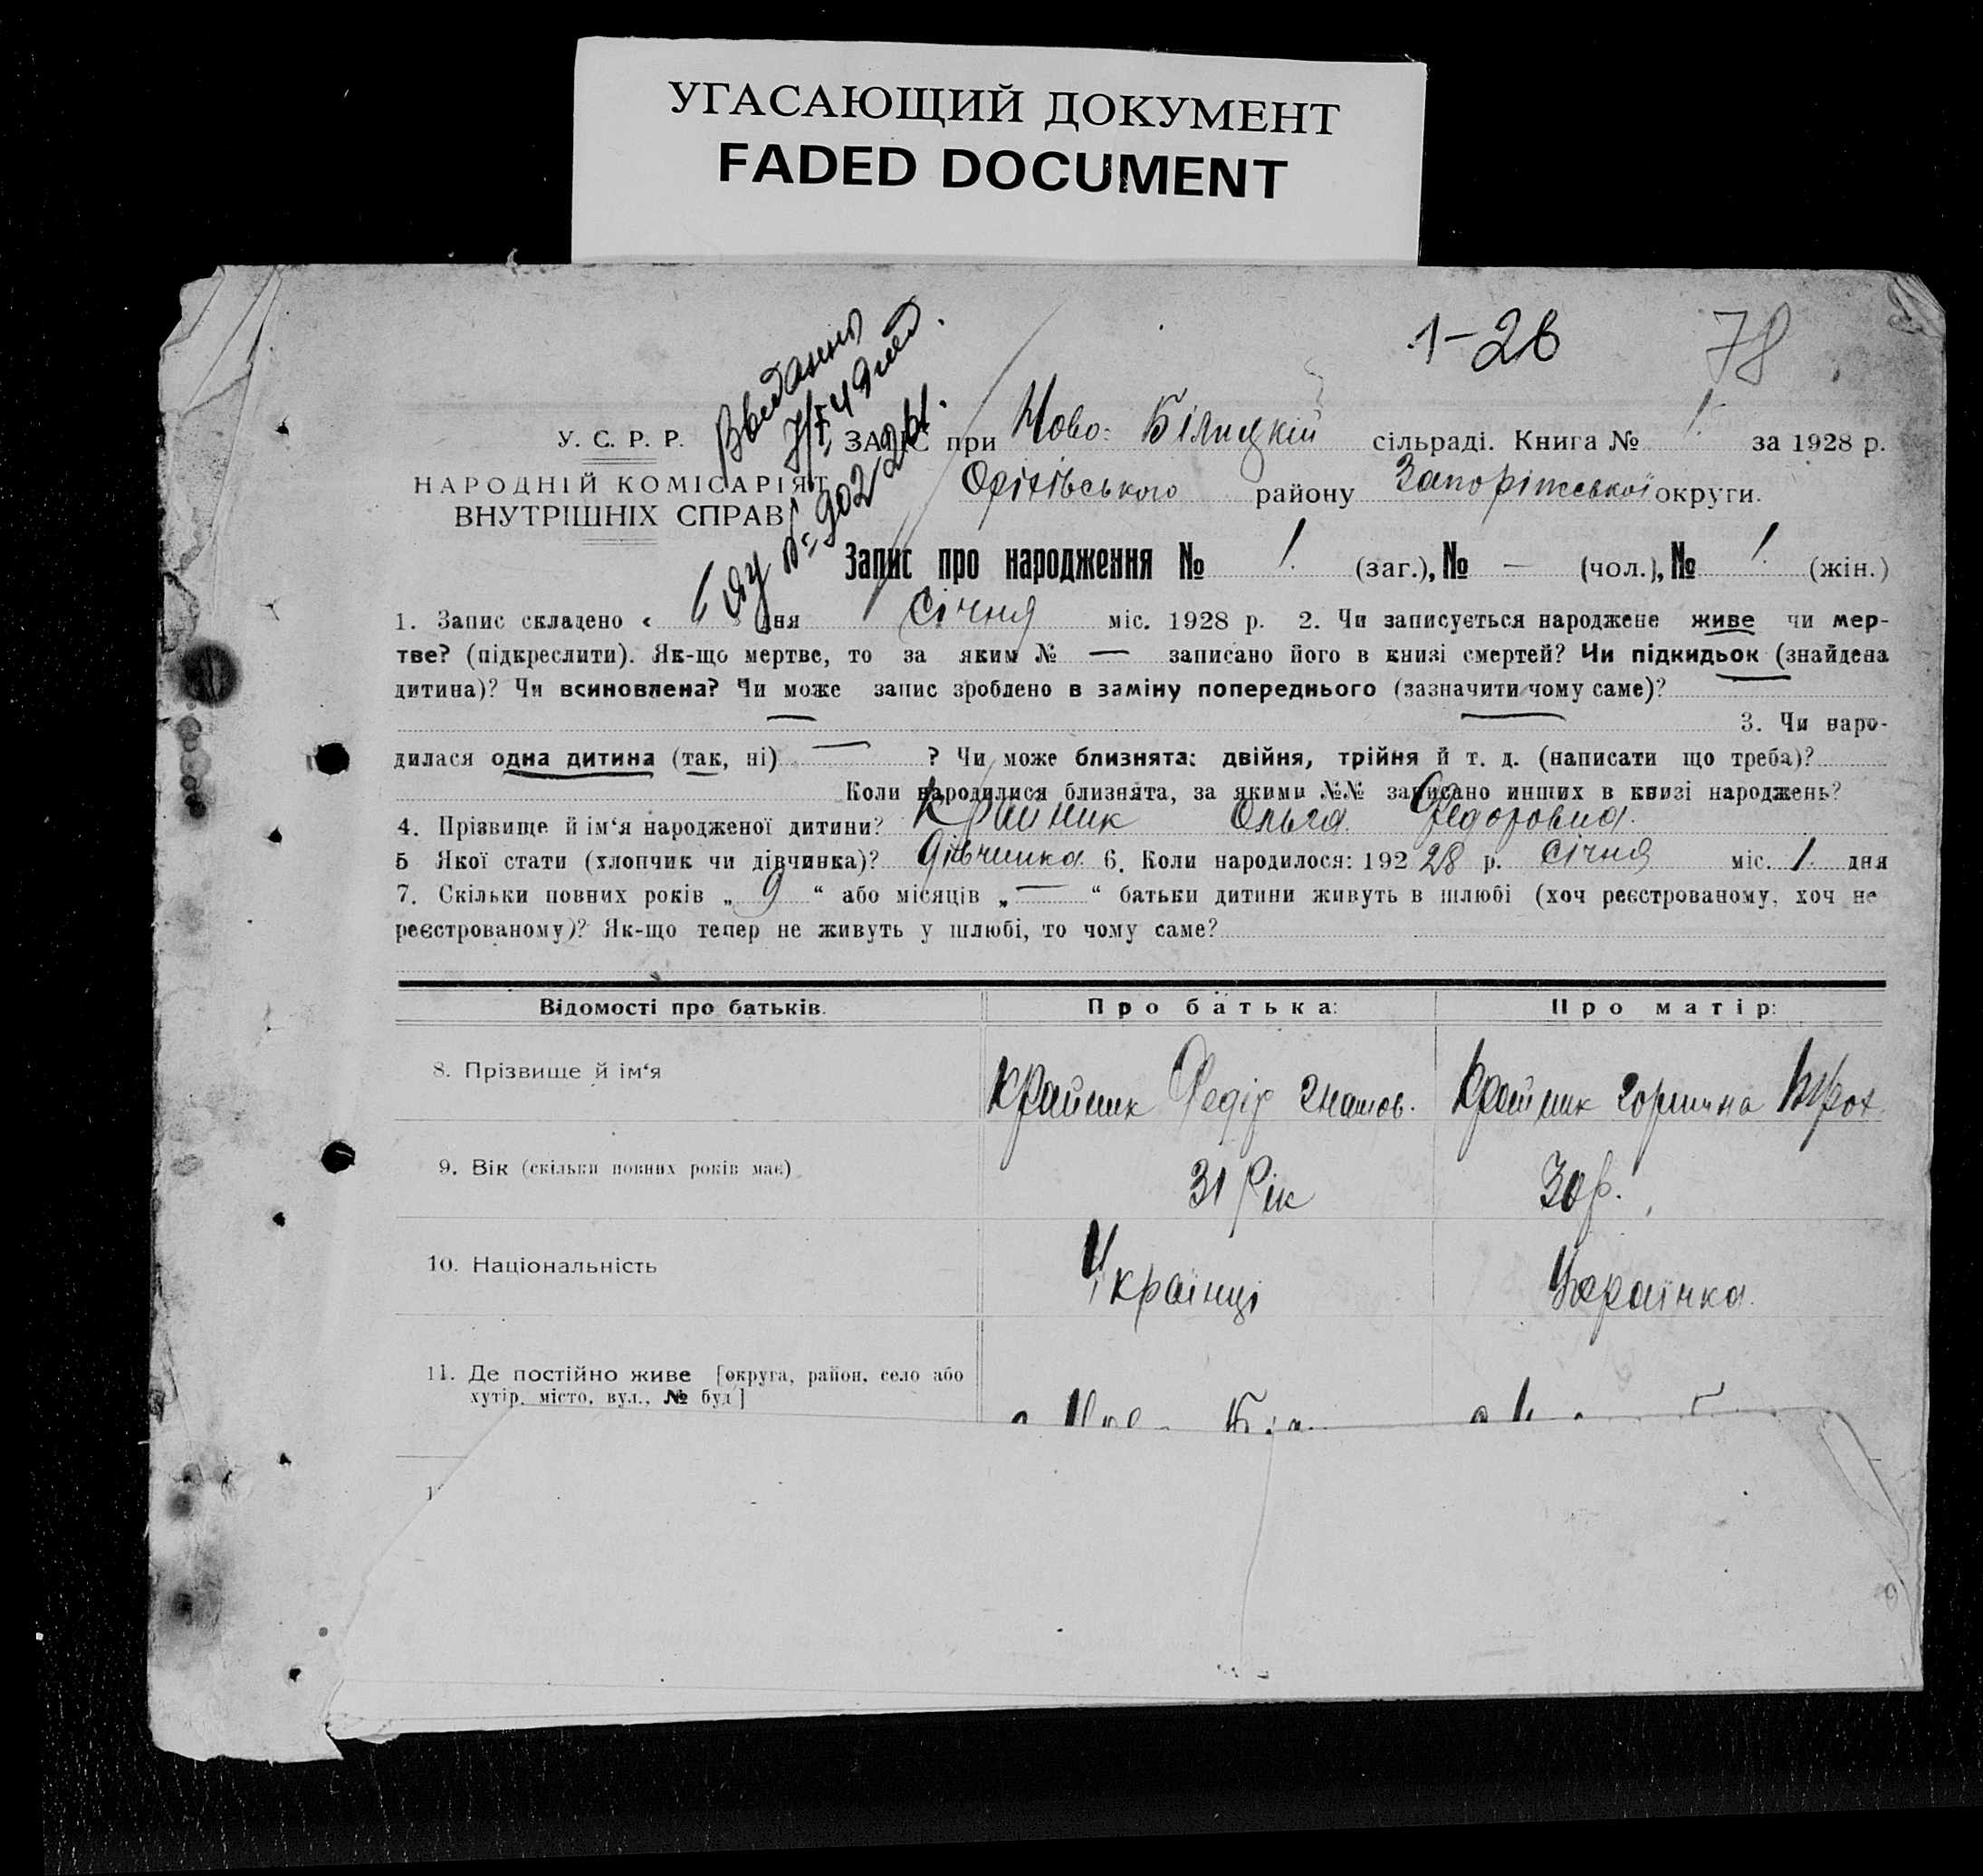 УГАСАЮЩИЙ ДОКУМЕНТ
FADED DOCUMENT
1-28
78
У. С. Р. Р.
НАРОДНІЙ КОМІСАРІЯТ
ВНУТРІШНІХ СПРАВ
ЗАПИС при Ново: Білицкій сільраді. Книга № 1 за 1928 р.
Оріхівського району Запоріжської округи.
Запис про народження № 1. (заг.), № — (чол.), № 1. (жін.)
1. Запис складено « дня Січня міс. 1928 р. 2. Чи записується народжене живе чи мер-
тве? (підкреслити). Як-що мертве, то за яким № — записано його в книзі смертей? Чи підкидьок (знайдена
дитина)? Чи всиновлена? Чи може запис зроблено в заміну попереднього (зазначити чому саме)?
3. Чи наро-
дилася одна дитина (так, ні) — ? Чи може близнята: двійня, трійня й т. д. (написати що треба)?
Коли народилися близнята, за якими №№ записано инших в книзі народжень?
4. Прізвище й ім‘я народженої дитини? Крайник Ольга Федоровна.
5 Якої стати (хлопчик чи дівчинка)? дівчинка 6. Коли народилося: 192 28 р. Січня міс. 1. дня
7. Скільки повних років „ 9 “ або місяців „ — “ батьки дитини живуть в шлюбі (хоч реєстрованому, хоч не
реєстрованому)? Як-що тепер не живуть у шлюбі, то чому саме?
Відомості про батьків. Про батька: Про матір:
8. Прізвище й ім‘я Крайник Федір Гнатов. Крайник Горпина
9. Вік (скільки повних років має) 31 Рік 30 р.
10. Національність Українці Українка.
11. Де постійно живе [округа, район, село або
хутір, місто, вул., № буд]